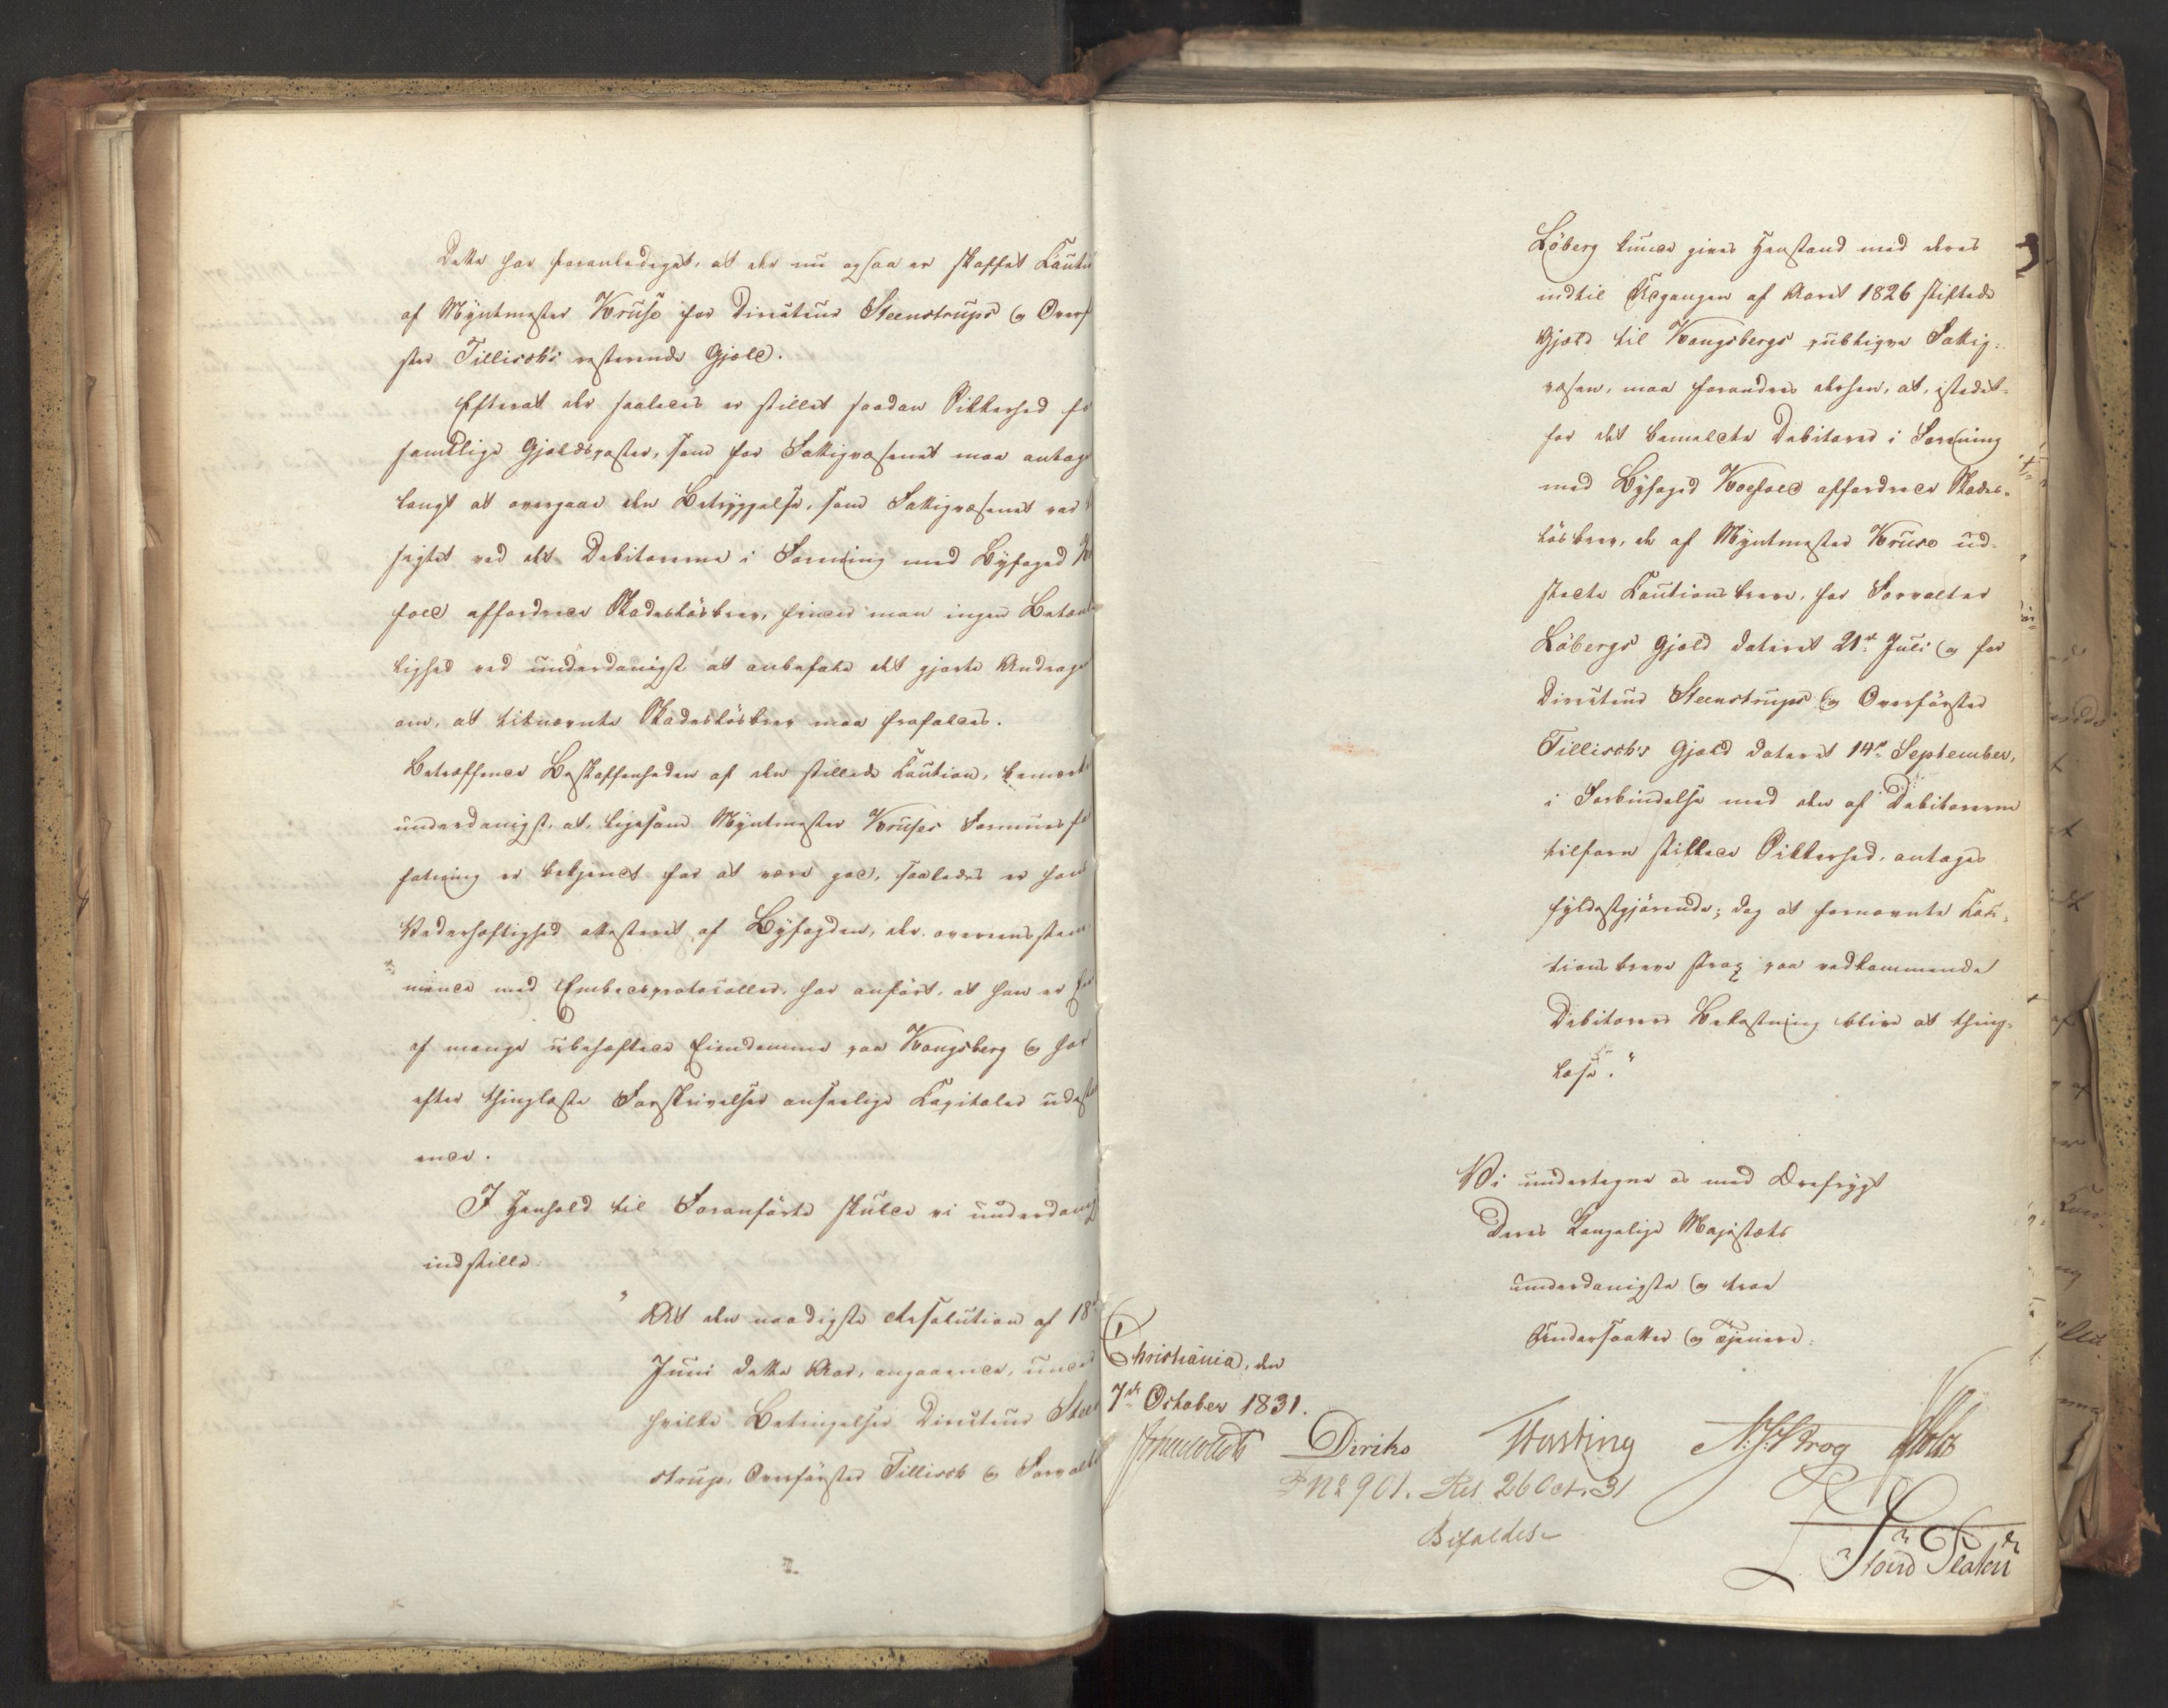 Dette har foranlediget, at der nu ogsaa er skaffet Kautio
af Myntmester Kruse for Directeur Steenstrups og Overf
ster Tillisch's resterende Gjeld.
Efterat der saaledes er stillet saadan Sikkerhed fo
samtlige Gjeldsposter, som for Fattigvæsenet maa antag
langt at overgaae den Betryggelse, som Fattigvæsenet var
sigtet ved det Debitorerne i Forening med Byfoged K
foed affordrede Skadesløsbrev, finder man ingen Betænk
lighed ved underdanigst at anbefale det gjorte Andrage
om, at bemeldte Skadesløsbrev maa frafaldes.
Betræffende Beskaffenheden af den stillede Kaution, bemærk
underdanigst, at, ligesom Myntmester Kruses Formuesfo
fatning er bekjendt for at være god, saaledes er hans
Vederhæftighed attesteret af Byfogden, der overeensstem
mende med Embedsprotocoller, har anført, at han er Eie
af mange ubehæftede Eiendomme paa Kongsberg og har
efter thinglæste Forskrivelser anseelige Kapitaler udest
ende.
I Henhold til Foranførte skulde vi underdanig
indstille:
"At den naadigste Resolution af 18d
Juni dette Aar, angaaende, unde
hvilke Betingelser Directeur Steen
strup, Overførster Tillisch og Forvalt
Löberg kunde gives Henstand med deres
indtil Udgangen af Aaret 1826 stiftede
Gjæld til Kongsbergs publique Fattig-
væsen, maa forandres derhen, at, istedet-
for det bemeldte Debitorer i Forening
med Byfoged Koefoed affordrede Skades-
løsbrev, de af Myntmester Kruse ud-
stædte Kautionsbreve, for Forvalter
Löbergs Gjæld dateret 21de Juli og for
Directeur Steenstrups og Overførster
Tillisch's Gjæld dateret 14de September,
i Forbindelse med den af Debitorerne
tilforn stillede Sikkerhed, antages
fyldestgjørende; dog at fornævnte Kau-
tionsbreve strax paa vedkommende
Debitorers Bekostning blive at thing-
læse."
Vi undertegne os med Ærefrygt
Deres Kongelige Majestæts
underdanigste og troe
Undersaatter og Tjenere.
Christiania, den
7de October 1831.
Diriks
Fasting
Krog
Holst
No 901. Res 26 Oct. 31
Bifaldes